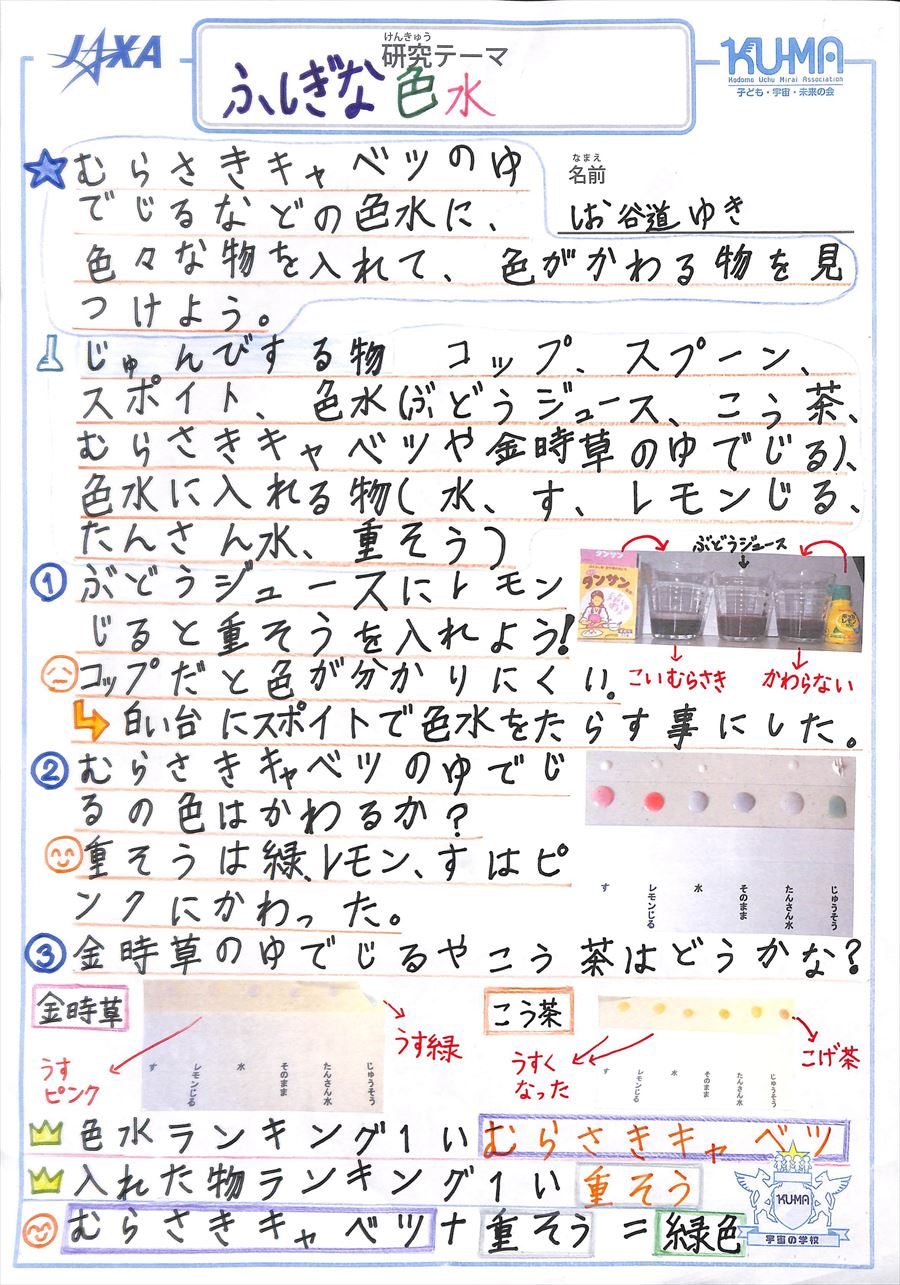 JAXA
けんきゅう
研究テーマ
ふしぎな色水
KU-MA
Kodomo Uchu Mirai Association
子ども・宇宙・未来の会
むらさきキャベツのゆ
でじるなどの色水に、
色々な物を入れて、色がかわる物を見
つけよう。
なまえ
名前
しお谷道ゆき
じゅんびする物 コップ、スプーン、
スポイト、色水(ぶどうジュース、こう茶、
むらさきキャベツや金時草のゆでじる)、
色水に入れる物(水、す、レモンじる、
たんさん水、重そう)
① ぶどうジュースにレモン
じると重そうを入れよう!
ぶどうジュース
タンサン
タンサン
こいむらさき
かわらない
コップだと色が分かりにくい。
白い台にスポイトで色水をたらす事にした。
② むらさきキャベツのゆでじ
るの色はかわるか?
重そうは緑、レモン、すはピ
ンクにかわった。
す
レモンじる
水
そのまま
たんさん水
じゅうそう
③ 金時草のゆでじるやこう茶はどうかな?
金時草
うす緑
うす
ピンク
す
レモンじる
水
そのまま
たんさん水
じゅうそう
こう茶
こげ茶
うすく
なった
す
レモンじる
水
そのまま
たんさん水
じゅうそう
色水ランキング1い むらさきキャベツ
入れた物ランキング1い 重そう
むらさきキャベツ+重そう=緑色
KU-MA
宇宙の学校